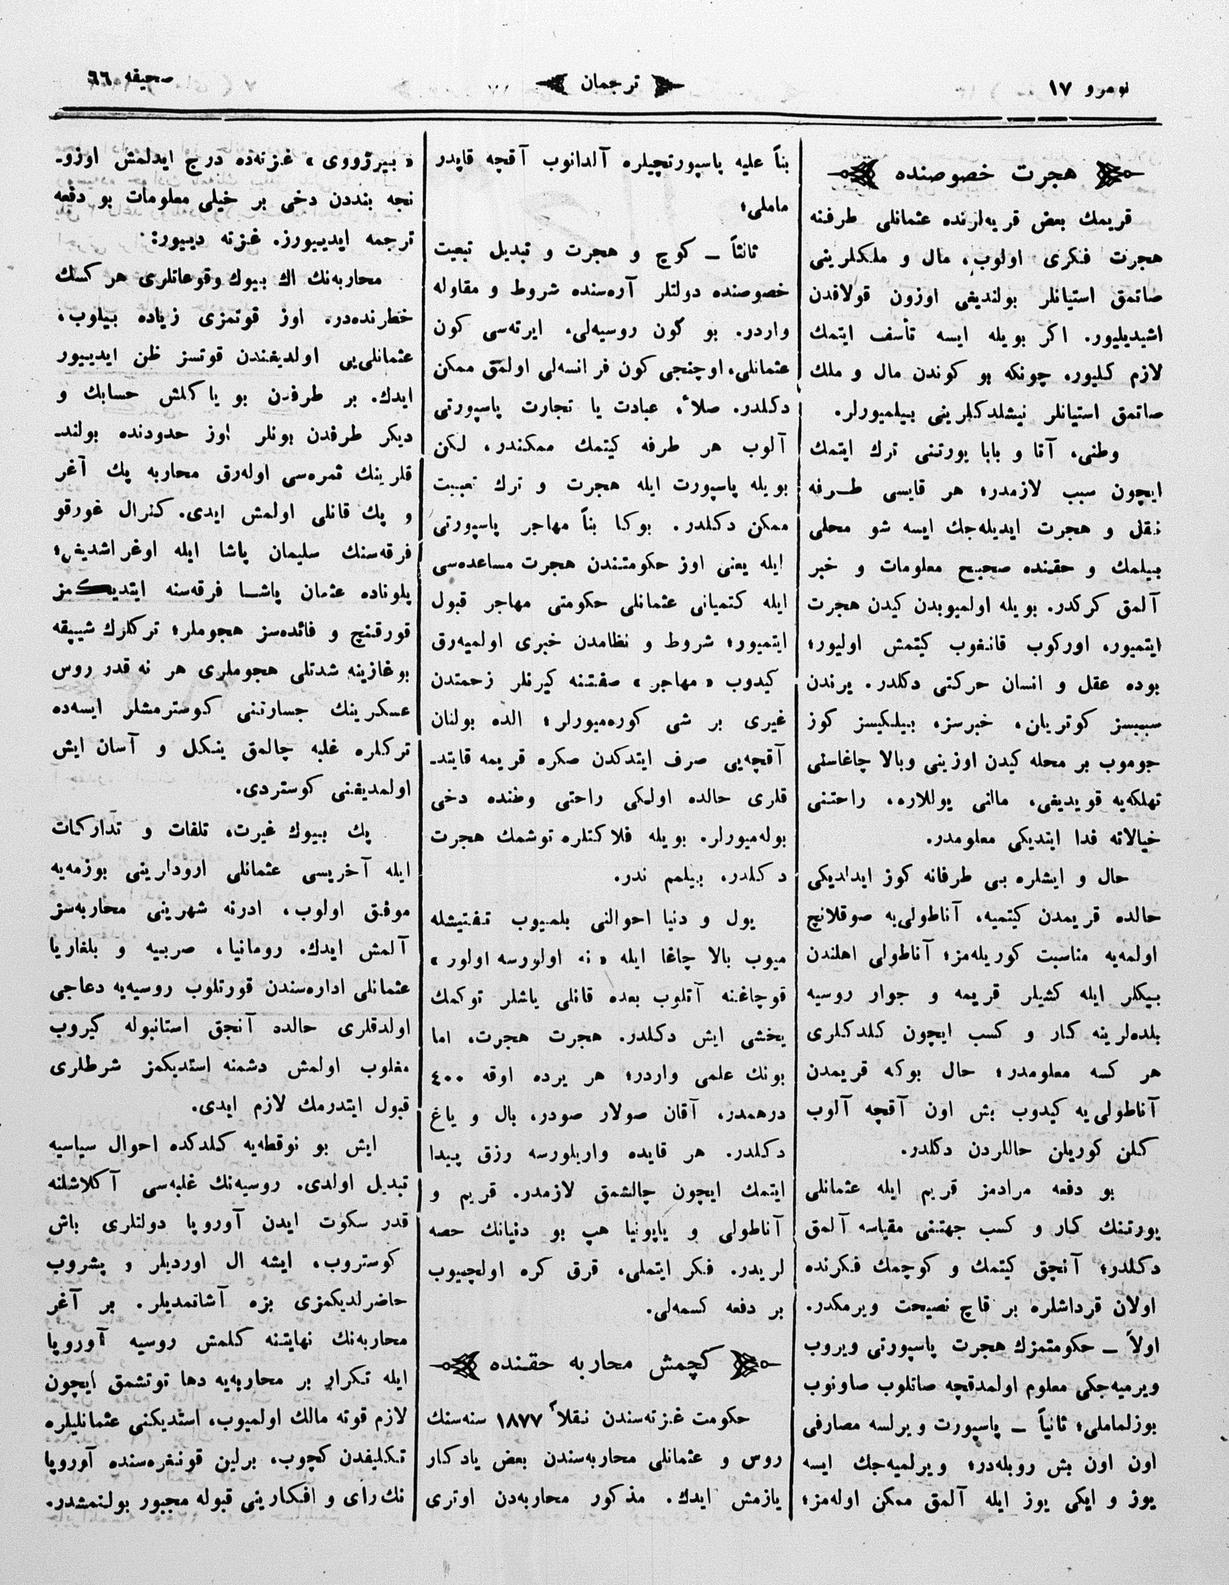 نومرو ١٧
ترجمان
صحيفه ٦٦
هجرت خصوصنده
قريمك بعض قريه‌لرنده عثمانلى طرفنه
هجرت فكرى اولوب، مال و ملكلرينى
صاتمق استيانلر بولنديغى اوزون قولاقدن
اشيديليور. اكر بويله ايسه تأسف ايتمك
لازم كليور، چونكه بو كوندن مال و ملك
صاتمق استيانلر نيشلدكلرينى بيلميورلر.
وطنى، آتا و بابا يورتنى ترك ايتمك
ايچون سبب لازمدر؛ هر قايسى طرفه
نقل و هجرت ايديله‌جك ايسه شو محلى
بيلمك و حقنده صحيح معلومات و خبر
آلمق كركدر. بويله اولميوبدن كيدن هجرت
ايتميور، اوركوب قانقوب كيتمش اوليور؛
بوده عقل و انسان حركتى دكلدر. يرندن
سببسز كوتريان، خبرسز، بيلكيسز كوز
جوموب بر محله كيدن اوزينى وبالا چاغاسنى
تهلكه‌يه قويديغى، مالنى يوللاره، راحتنى
خيالاته فدا ايتديكى معلومدر.
حال و ايشلره بى طرفانه كوز ايدلديكى
حالده قريمدن كيتميه، آناطولى‌يه صوقلانچ
اولمه‌يه مناسبت كوريله‌مز؛ آناطولى اهلندن
بيكلر ايله كشيلر قريمه و جوار روسيه
بلده‌لرينه كار و كسب ايچون كلدكلرى
هر كسه معلومدر؛ حال بوكه قريمدن
آناطولى‌يه كيدوب بش اون آقچه آلوب
كلن كوريلن حاللردن دكلدر.
بو دفعه مرادمز قريم ايله عثمانلى
يورتنك كار و كسب جهتنى مقياسه آلمق
دكلدر؛ آنجق كيتمك و كوچمك فكرنده
اولان قرداشلره بر قاچ نصيحت ويرمكدر.
اولاً — حكومتمزك هجرت پاسپورتى ويروب
ويرميه‌جكى معلوم اولمدقچه صاتلوب صاونوب
بوزلماملى؛ ثانياً — پاسپورت ويرلسه مصارفى
اون اون بش روبله‌در؛ ويرلميه‌جك ايسه
يوز و ايكى يوز ايله آلمق ممكن اوله‌مز؛
بناً عليه پاسپورتچيلره آلدانوب آقچه قاپدر
ماملى؛
ثالثاً — كوچ و هجرت و تبديل تبعيت
خصوصنده دولتلر آره‌سنده شروط و مقاوله
واردر. بو كون روسيه‌لى، ايرته‌سى كون
عثمانلى، اوچنجى كون فرانسه‌لى اولمق ممكن
دكلدر. صلاً، عبادت يا تجارت پاسپورتى
آلوب هر طرفه كيتمك ممكندر، لكن
بويله پاسپورت ايله هجرت و ترك تعبيت
ممكن دكلدر. بوكا بناً مهاجر پاسپورتى
ايله يعنى اوز حكومتندن هجرت مساعده‌سى
ايله كتميانى عثمانلى حكومتى مهاجر قبول
ايتميور؛ شروط و نظامدن خبرى اولميه‌رق
كيدوب «مهاجر» صفتنه كيرنلر زحمتدن
غيرى بر شى كوره‌ميورلر؛ الده بولنان
آقچه‌يى صرف ايتدكدن صكره قريمه قايتد-
قلرى حالده اولكى راحتى وطننده دخى
بوله‌ميورلر. بويله فلاكتلره توشمك هجرت
دكلدر، بيلمم ندر.
يول و دنيا احوالنى بلميوب تفتيشله
ميوب بالا چاغا ايله «نه اولورسه اولور»
قوچاغنه آتلوب بعده قانلى ياشلر توكمك
يخشى ايش دكلدر. هجرت هجرت، اما
بونك علمى واردر؛ هر يرده اوقه ٤٠٠
درهمدر، آقان صولار صودر، بال و ياغ
دكلدر. هر قايده واريلورسه رزق پيدا
ايتمك ايچون چالشمق لازمدر. قريم و
آناطولى و ياپونيا هپ بو دنيانك حصه
لريدر. فكر ايتملى، قرق كره اولچيوب
بر دفعه كسمه‌لى.
كچمش محاربه حقنده
حكومت غزته‌سندن نقلاً ١٨٧٧ سنه‌سنك
روس و عثمانلى محاربه‌سندن بعض يادكار
يازمش ايدك. مذكور محاربه‌دن اوترى
«بيرژووى» غزته‌ده درج ايدلمش اوزو-
نجه بنددن دخى بر خيلى معلومات بو دفعه
ترجمه ايديبورز. غزته ديبور:
محاربه‌نك اك بيوك وقوعاتلرى هر كسك
خطرنده‌در. اوز قوتمزى زياده بيلوب،
عثمانلى‌يى اولديغندن قوتسز ظن ايديبور
ايدك. بر طرفدن بو ياكلش حسابك و
ديكر طرفدن بونلر اوز حدودنده بولند-
قلرينك ثمره‌سى اوله‌رق محاربه پك آغر
و پك قانلى اولمش ايدى. كنرال غورقو
فرقه‌سنك سليمان پاشا ايله اوغراشديغى؛
پلوناده عثمان پاشا فرقه‌سنه ايتديكمز
قورقنچ و فائده‌سز هجوملر؛ تركلرك شيپقه
بوغازينه شدتلى هجوملرى هر نه قدر روس
عسكرينك جسارتنى كوسترمشلر ايسه‌ده
تركلره غلبه چالمق ينكل و آسان ايش
اولمديغنى كوستردى.
پك بيوك غيرت، تلفات و تداركات
ايله آخريسى عثمانلى اردولرينى بوزمه‌يه
موفق اولوب، ادرنه شهرينى محاربه‌سز
آلمش ايدك. رومانيا، صربيه و بلغاريا
عثمانلى اداره‌سندن قورتلوب روسيه‌يه دعاجى
اولدقلرى حالده آنجق استانبوله كيروب
مغلوب اولمش دشمنه استديكمز شرطلرى
قبول ايتدرمك لازم ايدى.
ايش بو نوقطه‌يه كلدكده احوال سياسيه
تبديل اولدى. روسيه‌نك غلبه‌سى آكلاشلنه
قدر سكوت ايدن آوروپا دولتلرى باش
كوستروب، ايشه ال اورديلر و پشروب
حاضرلديكمزى بزه آشاتمديلر. بر آغر
محاربه‌نك نهايتنه كلمش روسيه آوروپا
ايله تكرار بر محاربه‌يه دها توتشمق ايچون
لازم قوته مالك اولميوب، استديكنى عثمانليلره
تكليفدن كچوب، برلين قونغره‌سنده آوروپا
نك راى و افكارينى قبوله مجبور بولنمشدر.